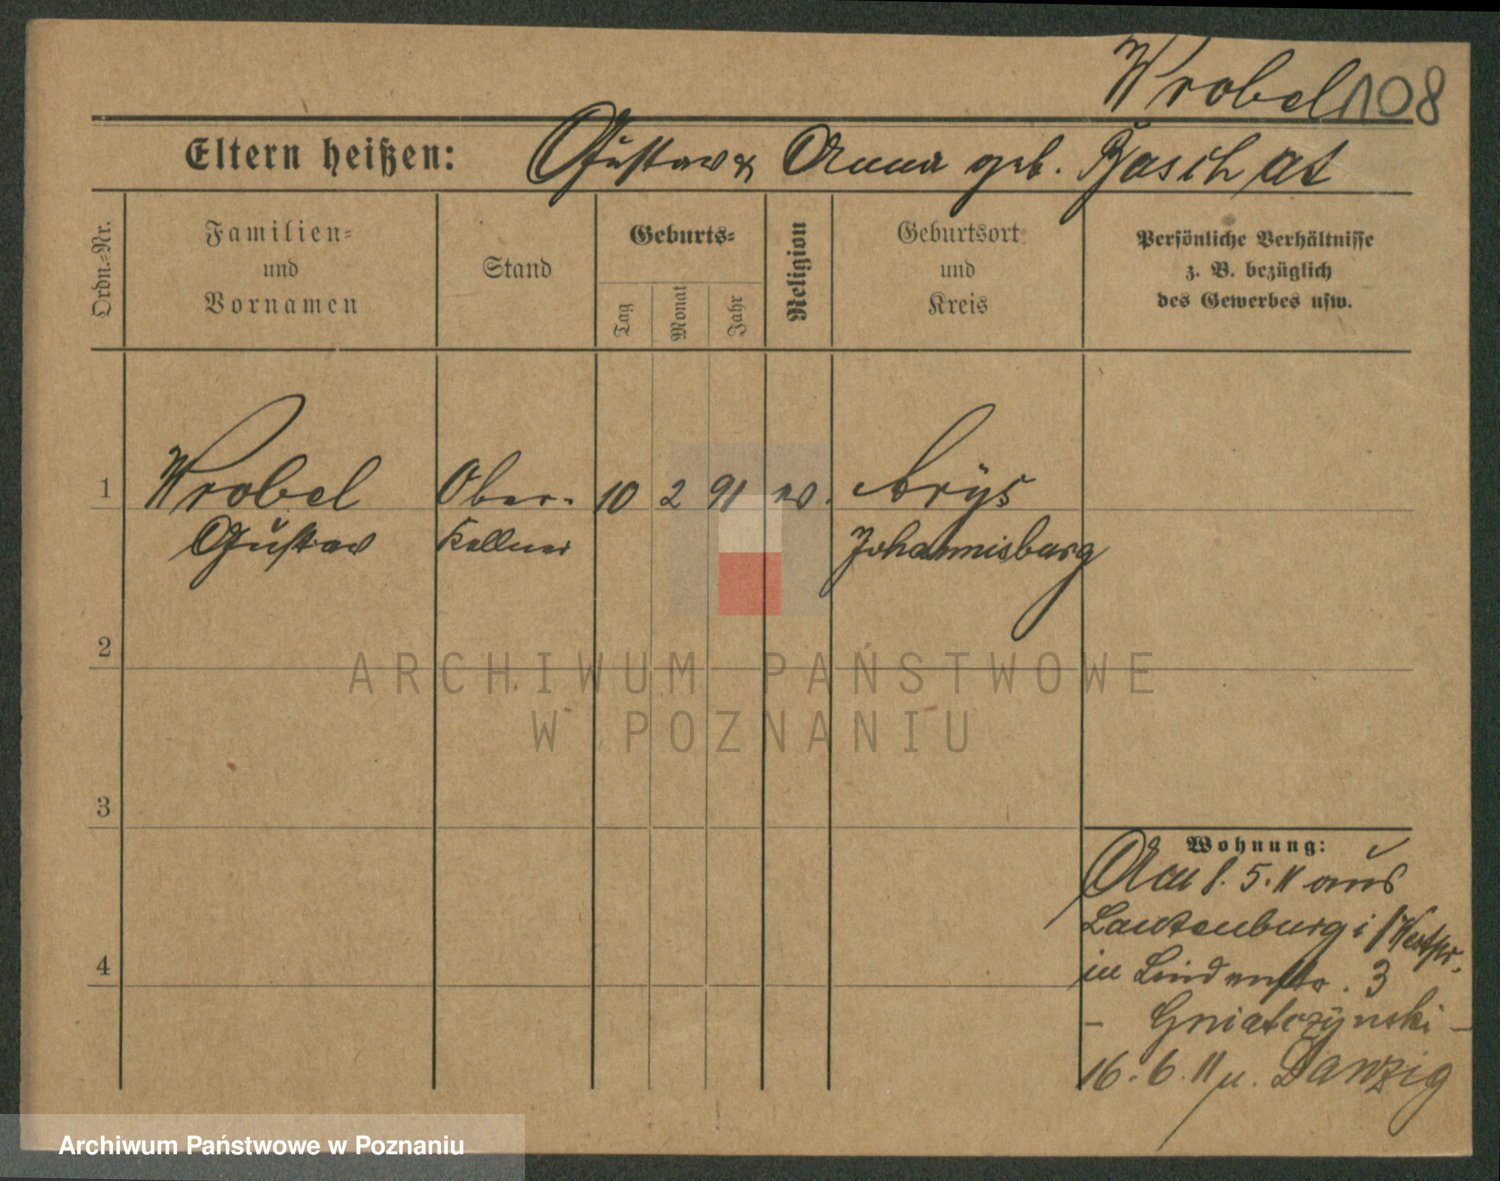 Wrobel 108
Eltern heißen: Gustav & Anna geb.
Ordn.-Nr.
Familien- und Vornamen
Stand
Geburts-
Tag
Monat
Jahr
Religion
Geburtsort und Kreis
Persönliche Verhältnisse
z. B. bezüglich
des Gewerbes usw.
1 Wrobel Ober- 10 2 91 ev. Arys
Gustav Kellner Johannisburg
2
ARCHIWUM PAŃSTWOWE
W POZNANIU
3
Wohnung:
Am 8. 5. 11 aus
Lautenburg i Westpr.
in Lindenstr. 3
- Gniatczynski -
4
16. 6. 11 n. Danzig
Archiwum Państwowe w Poznaniu